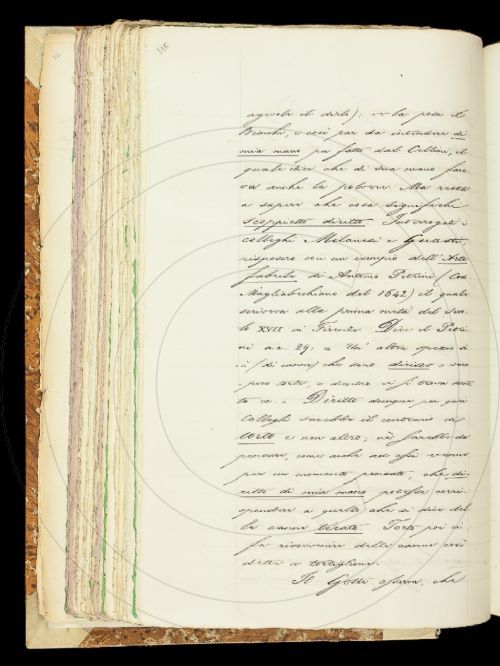 346
agevole il dirlo); ve la pose il
Bianchi, e così par da intendere di
mia mano fu fatto dal Cellini, il
quale dice che di sua mano face-
va anche la polvere. Ma resta
a sapere che cosa significhi
scoppietto diritto. Interrogati i
colleghi Milanesi e Guasti,
risposero con un esempio dell'Arte
fabrile di Antonio Petrini (Cod.
Magliabechiano del 1642) il quale
scriveva alla prima metà del Seco-
lo XVII in Firenze. Dice il Petri-
ni a c. 29: = Un' altra spezie
(di canne) che sono diritte
poco torte, e dentro vi si trova
= Diritto dunque per
Colleghi sarebbe il contrario di
torto e non altro; nè sarebbe da
pensare, come anche ad essi venne
per un momento pensato, che di-
ritto di mia mano potesse corri-
spondere a quello che si dice del-
la canna tirata. Torto poi
fa risovvenire delle canne così
dette a tortiglione.
Il Gotti osserva, che